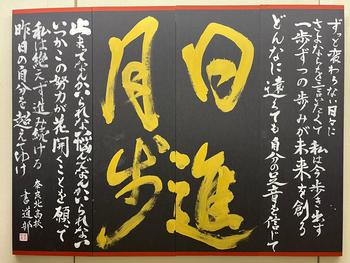 ずっと変わらない日々に
さよならを言いたくて 私は今歩き出す
一歩ずつの歩みが未来を創る
どんなに遠くても自分の足音を信じて
日進
月歩
止まってなんかいられない悩んでなんかいられない
いつかこの努力が花開くことを願って
私は絶えず進み続ける
昨日の自分を超えてゆけ
奈良北高校
書道部